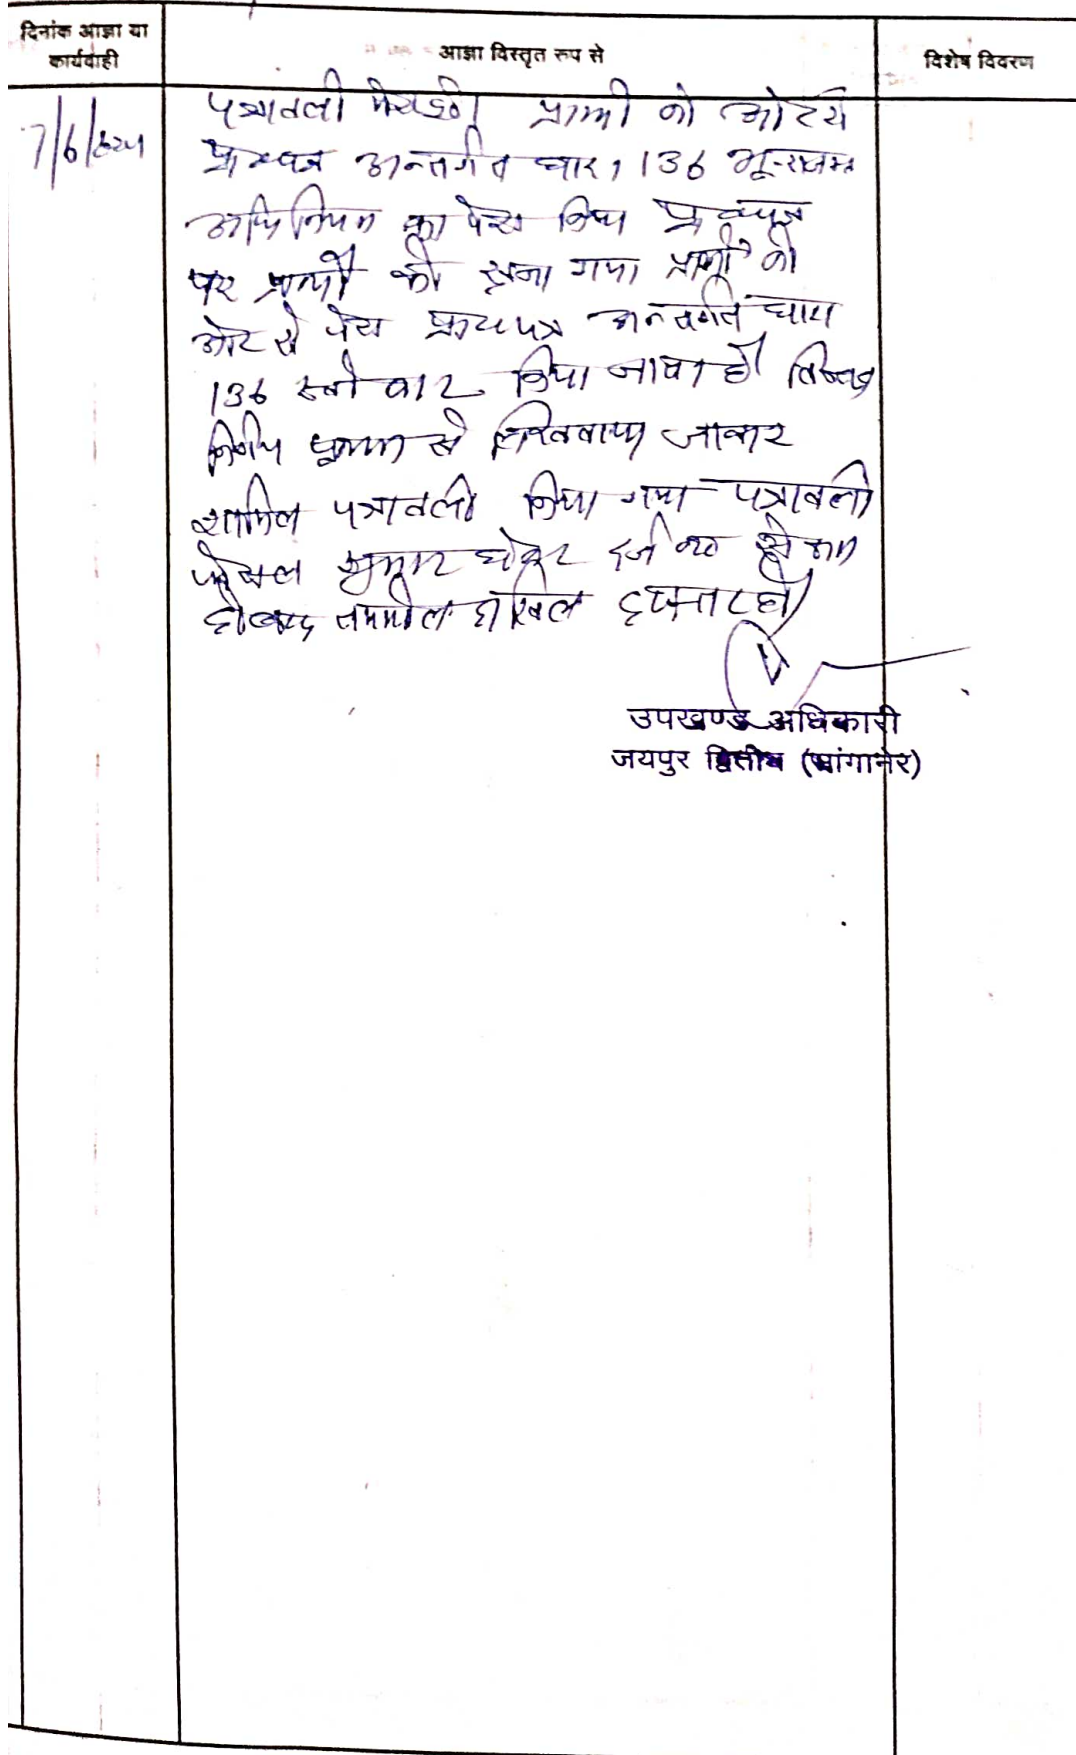 दिनांक आज्ञा या
कार्यवाही
आज्ञा विस्तृत रुप से
विशेष विवरण
7/6/2024
पत्रावली पेश हुई। प्रार्थी की ओर से
प्रा०पत्र अन्तर्गत धारा 136 भू-राजस्व
अधिनियम का पेश किया प्रा०पत्र
पर प्रार्थी को सुना गया प्रार्थी की
ओर से पेश प्रा०पत्र अन्तर्गत धारा
136 स्वीकार किया जाता है। विस्तृत
निर्णय पृथक से लिखवाया जाकर
शामिल पत्रावली किया गया पत्रावली
फैसल शुमार होकर दर्ज न० से कम
हो बाद तकमील दाखिल दफ्तर हो।
उपखण्ड अधिकारी
जयपुर द्वितीय (सांगानेर)